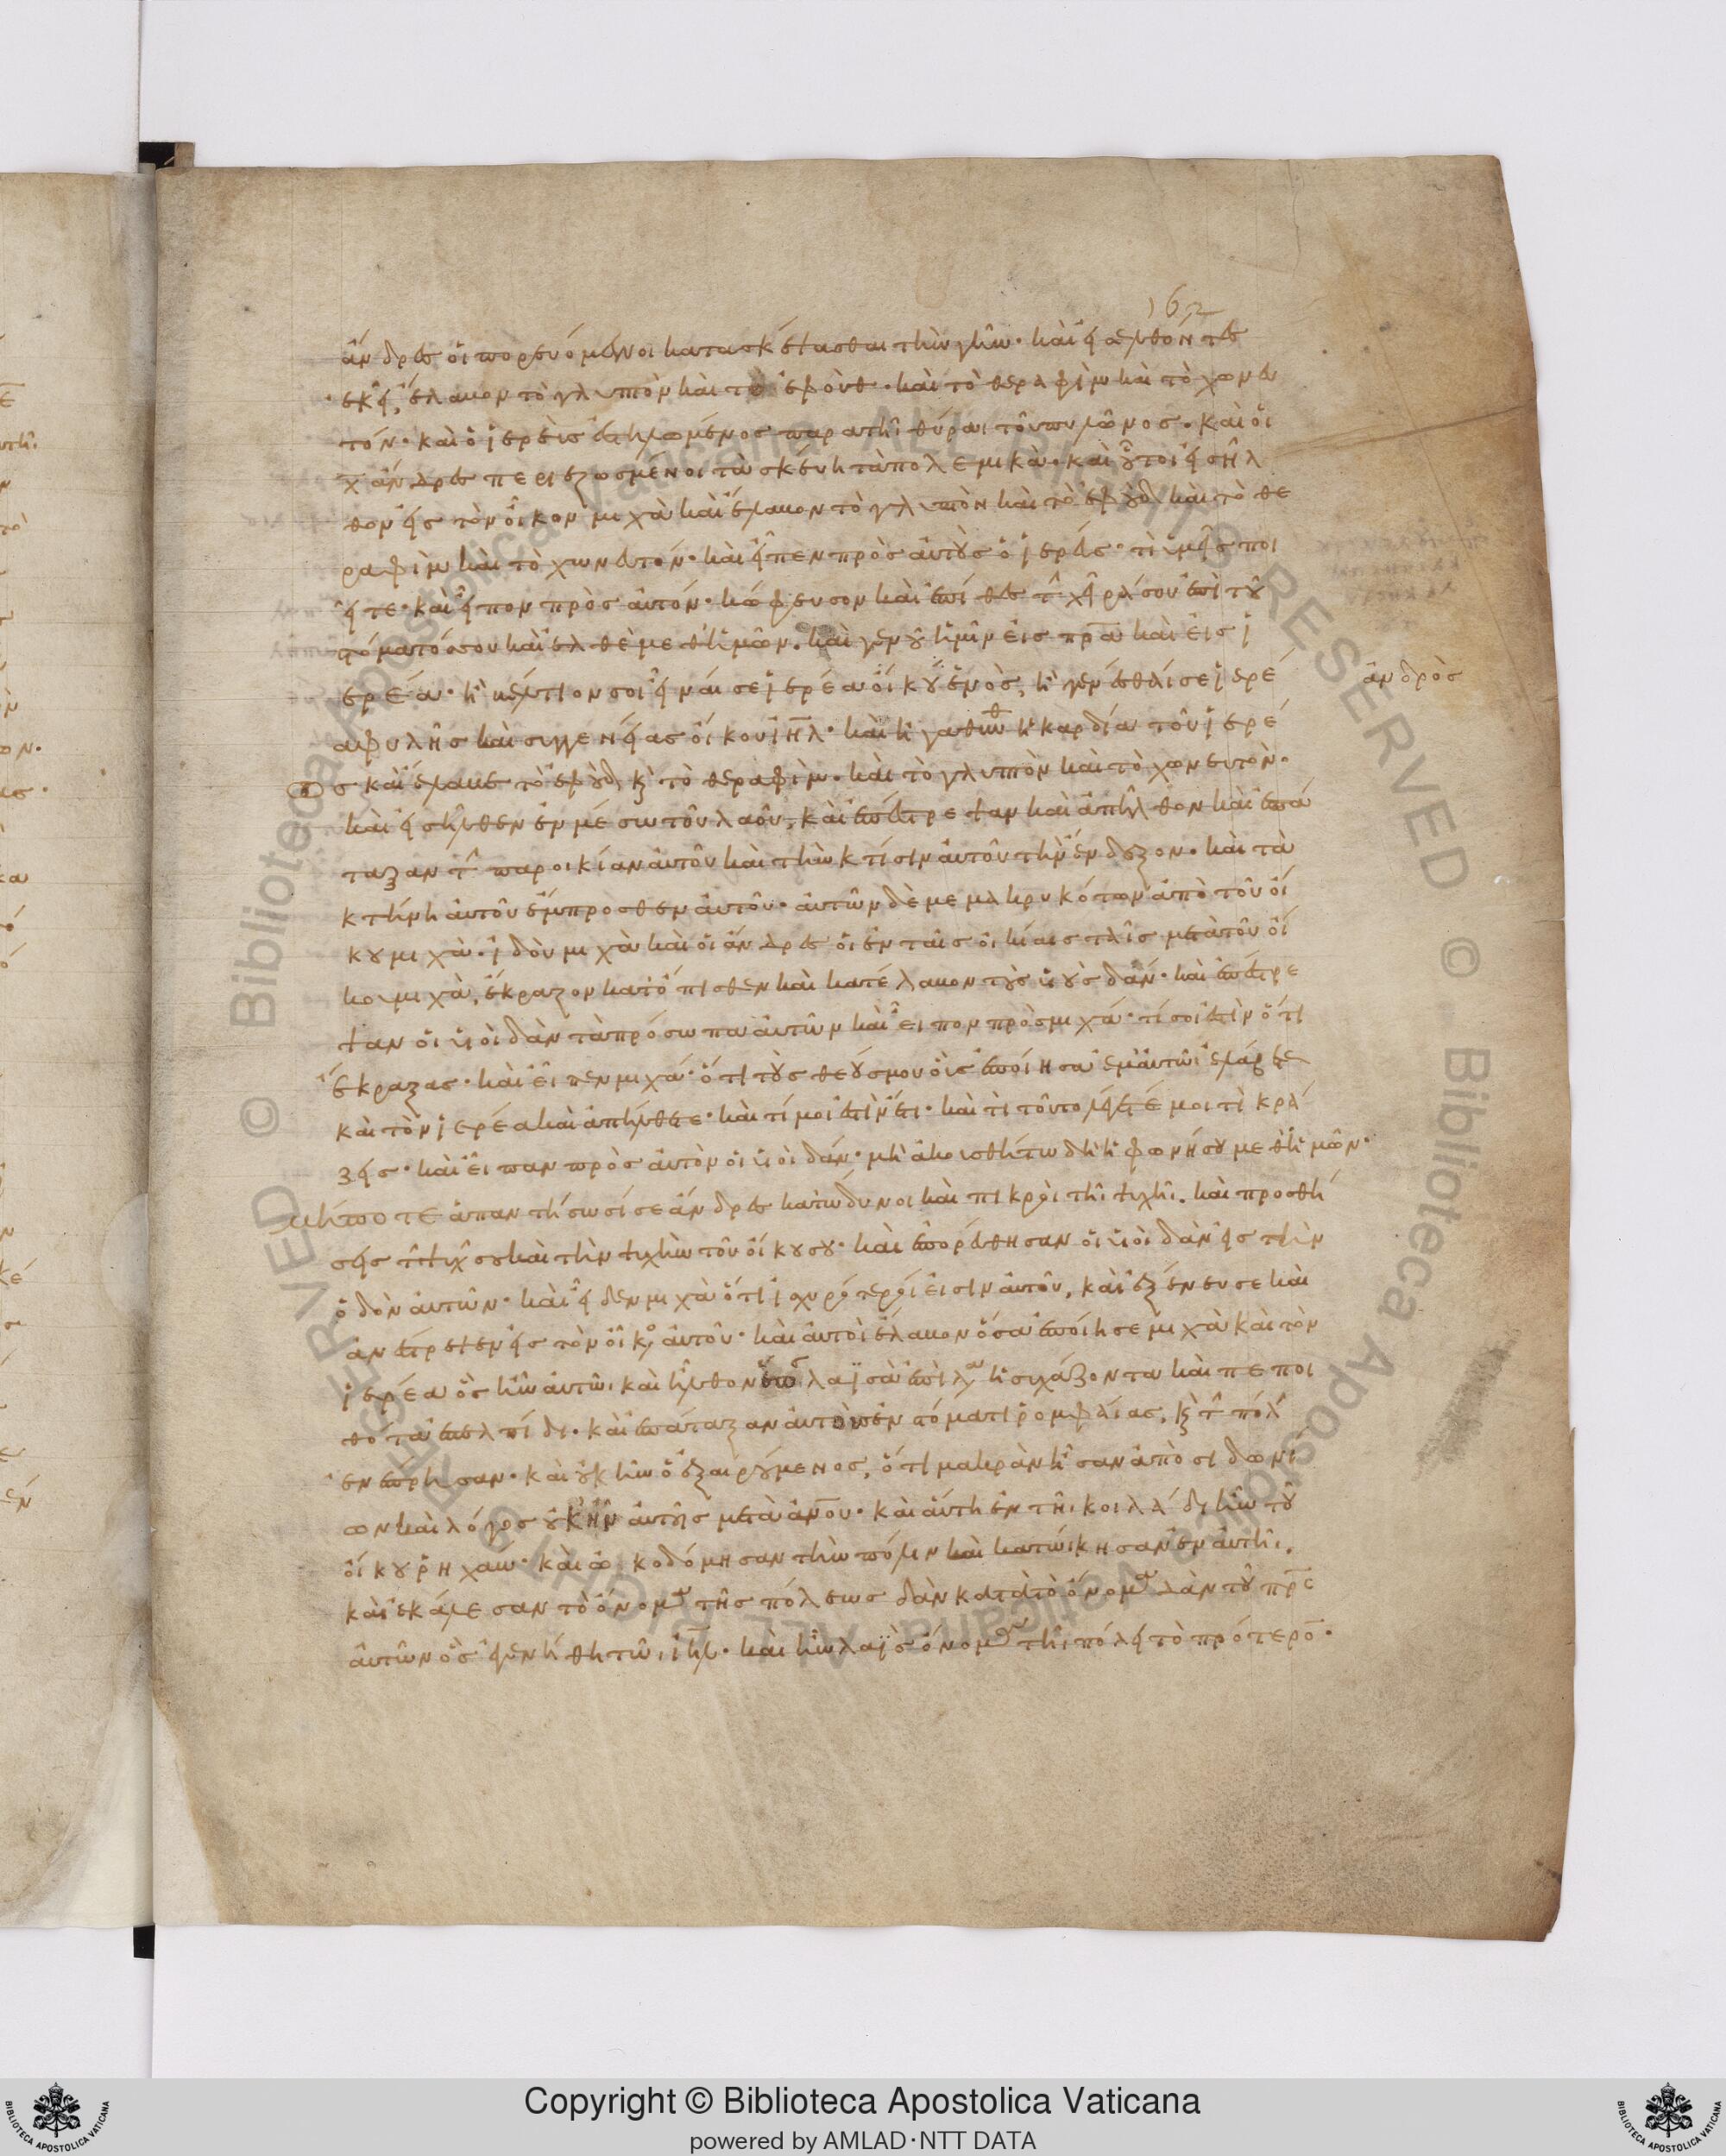 162
ἄνδρες οἱ πορευόμενοι κατασκέψασθαι τὴν γῆν· καὶ εἰσελθόντες
ἐκεῖ, ἔλαβον τὸ γλυπτὸν καὶ τὸ ἐφοὺδ· καὶ τὸ θεραφὶμ καὶ τὸ χωνευ
τόν· καὶ ὁ ἱερεὺς ἐστηλωμένος παρὰ τῆι θύραι τοῦ πυλῶνος· καὶ οἱ
χ ἄνδρες περιεζωσμένοι τὰ σκεύη τὰ πολεμικὰ· καὶ οὗτοι εἰσῆλ
θον εἰς τὸν οἶκον μιχὰ καὶ ἔλαβον τὸ γλυπτὸν καὶ τὸ ἐφοὺδ καὶ τὸ θε
ραφὶμ καὶ τὸ χωνευτόν· καὶ εἶπεν πρὸς αὐτοὺς ὁ ἱερεύς· τί ὑμεῖς ποι
εῖτε· καὶ εἶπον πρὸς αὐτόν· κώφευσον καὶ ἐπίθες τ χεῖρά σου ἐπὶ τοῦ
στόματός σου καὶ ἐλθὲ μεθ' ἡμῶν· καὶ γενοῦ ἡμῖν εἰς πρα καὶ εἰς ἱ
ερέα· ἢ βέλτιον σοι εἶναί σε ἱερέα οἴκου ἑνὸς, ἢ γενέσθαί σε ἱερέ
ἀνδρὸς
α φυλῆς καὶ συγγενείας οἴκου ιηλ· καὶ ἠγαθύνθ ἡ καρδία τοῦ ἱερέ
ως καὶ ἔλαβε τὸ ἐφοὺδ κ τὸ θεραφὶμ· καὶ τὸ γλυπτὸν καὶ τὸ χωνευτὸν·
καὶ εἰσῆλθεν ἐν μέσω τοῦ λαοῦ, καὶ ἐπέστρεψαν καὶ ἀπῆλθον καὶ ἐπά
ταξαν τ παροικίαν αὐτοῦ καὶ τὴν κτίσιν αὐτοῦ τὴν ἔνδοξον· καὶ τὰ
κτήνη αὐτοῦ ἔμπροσθεν αὐτοῦ· αὐτῶν δὲ μεμακρυκότων ἀπὸ τοῦ οἴ
κου μιχὰ· ἰδοὺ μιχὰ καὶ οἱ ἄνδρες οἱ ἐν ταῖς οἰκίαις ταῖς μετὰ τοῦ οἴ
κου μιχὰ, ἔκραζον κατόπισθεν καὶ κατέλαβον τοὺς υἱοὺς δάν· καὶ ἐπέστρε
ψαν οἱ υἱοὶ δὰν τὰ πρόσωπα αὐτῶν καὶ εἶπον πρὸς μιχά· τί σοι ἐστὶν ὅτι
ἔκραξας· καὶ εἶπεν μιχά· ὅτι τοὺς θεούς μου οὓς ἐποίησα ἐμαυτῶι ἐλάβετε
καὶ τὸν ἱερέα καὶ ἀπήλθετε· καὶ τί μοι ἐστὶν ἔτι· καὶ τί τοῦτο λέγετέ μοι τί κρά
ζεις· καὶ εἶπαν πρὸς αὐτὸν οἱ υἱοὶ δάν· μὴ ἀκουσθήτω δὴ ἡ φωνή σου μεθ' ἡμῶν·
μήποτε ἀπαντήσωσί σε ἄνδρες κατώδυνοι καὶ πικροὶ τῆι ψυχῆι· καὶ προσθή
σεις τ ψυχ σου καὶ τὴν ψυχὴν τοῦ οἴκου σου· καὶ ἐπορεύθησαν οἱ υἱοὶ δὰν εἰς τὴν
ὁδὸν αὐτῶν· καὶ εἶδεν μιχὰ ὅτι ἰσχυρότεροί εἰσιν αὐτοῦ, καὶ ἐξένευσε καὶ
ἀνέστρεψεν εἰς τὸν οἶκο αὐτοῦ· καὶ αὐτοὶ ἔλαβον ὅσα ἐποίησε μιχὰ καὶ τὸν
ἱερέα ὃς ἦν αὐτῶι καὶ ἦλθον ἕως λαϊσὰ ἐπὶ λα ἡσυχάζοντα καὶ πεποι
θότα ἐπ' ἐλπίδι· καὶ ἐπάταξαν αὐτοὺς ἐν στόματι ῥομφαίας, κ τ πόλ
ἐνέπρησαν· καὶ οὐκ ἦν ὁ ἐξαιρούμενος, ὅτι μακρὰν ἦσαν ἀπὸ σιδωνί
ων καὶ λόγος οὐκ ἦν αὐτοῖς μετὰ ανου· καὶ αὐτὴ ἐν τῆι κοιλάδι ἦν τοῦ
οἴκου ῥηχαώ· καὶ ὠκοδόμησαν τὴν πόλιν καὶ κατώικησαν ἐν αὐτῆι·
καὶ ἐκάλεσαν τὸ ὄνομα τῆς πόλεως δὰν κατὰ τὸ ὄνομα δὰν τοῦ πρς
αὐτῶν ὃς ἐγενήθη τῶι ιηλ· καὶ ἦν λαϊς ὄνομα τῆι πόλει τὸ πρότερο·
Copyright © Biblioteca Apostolica Vaticana
powered by AMLAD·NTT DATA